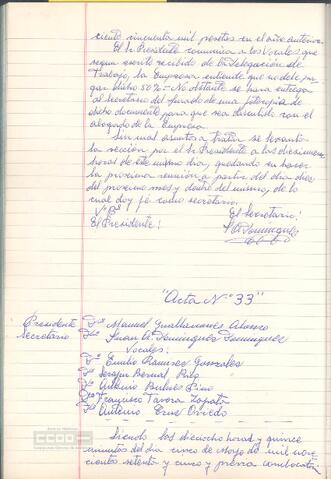 ciento cincuenta mil pesetas en el año anterior.
El Sr. Presidente comunica a los Vocales que
segun escrito recibido de la Delegación de
Trabajo, la Empresa entiende que no debe pa-
gar dicho 50%.- No obstante se hara entrega
al Secretario del Jurado de una fotocopia de
dicho documento para que sea discutido con el
abogado de la Empresa.
Sin mas asuntos a tratar se levanto
la sección por el Sr. Presidente a las diecinueve
horas de este mismo dia, quedando en hacer
la proxima reunión a partir del dia diez
del proximo mes y dentro del mismo, de lo
cual doy fé como secretario.
Vº Bº
El Presidente! El Secretario!
"Acta Nº 33"
Presidente Dº Manuel Alonso
Secretario Dº Juan A. Dominguez Dominguez
Vocales.
Dº Emilio Ramirez Gonzalez
Dº Serafin Bernal
Dº Antonio Pino
Dº Francisco Tavora Zapata
Dº Antonio Cruz Oviedo
CCOO
Siendo las dieciocho horas y quince
minutos del dia cinco de Mayo de mil nove-
cientos setenta y cinco y previa convocatoria